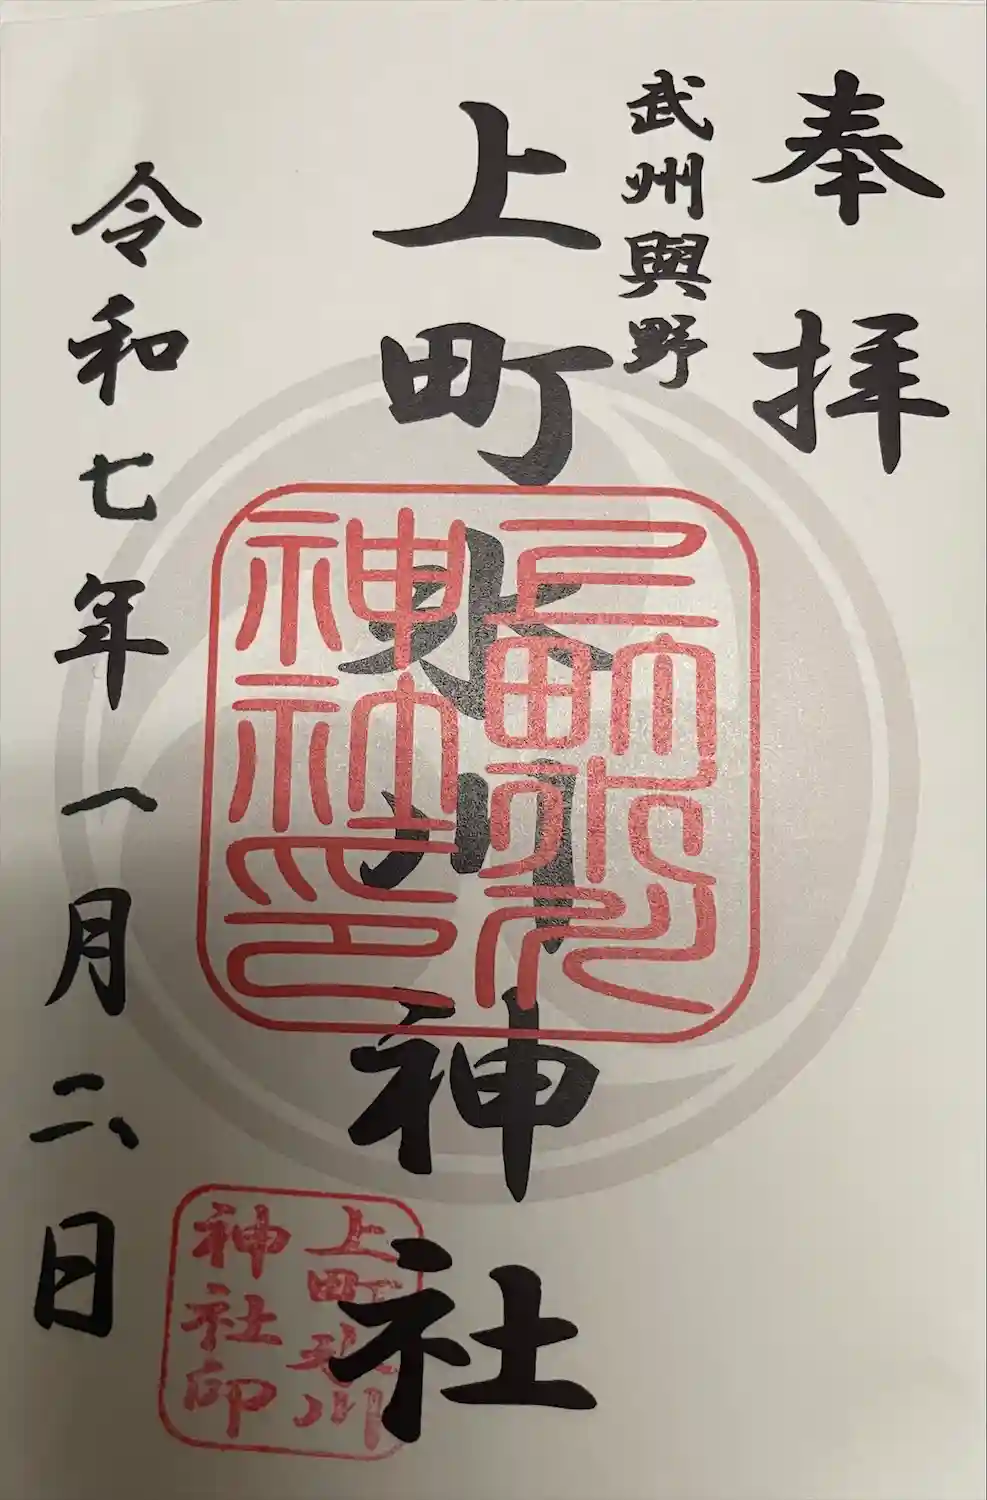 奉拝
武州與野
上町氷川神社
上町氷川
神社印
令和七年一月二日
上町氷川
神社印